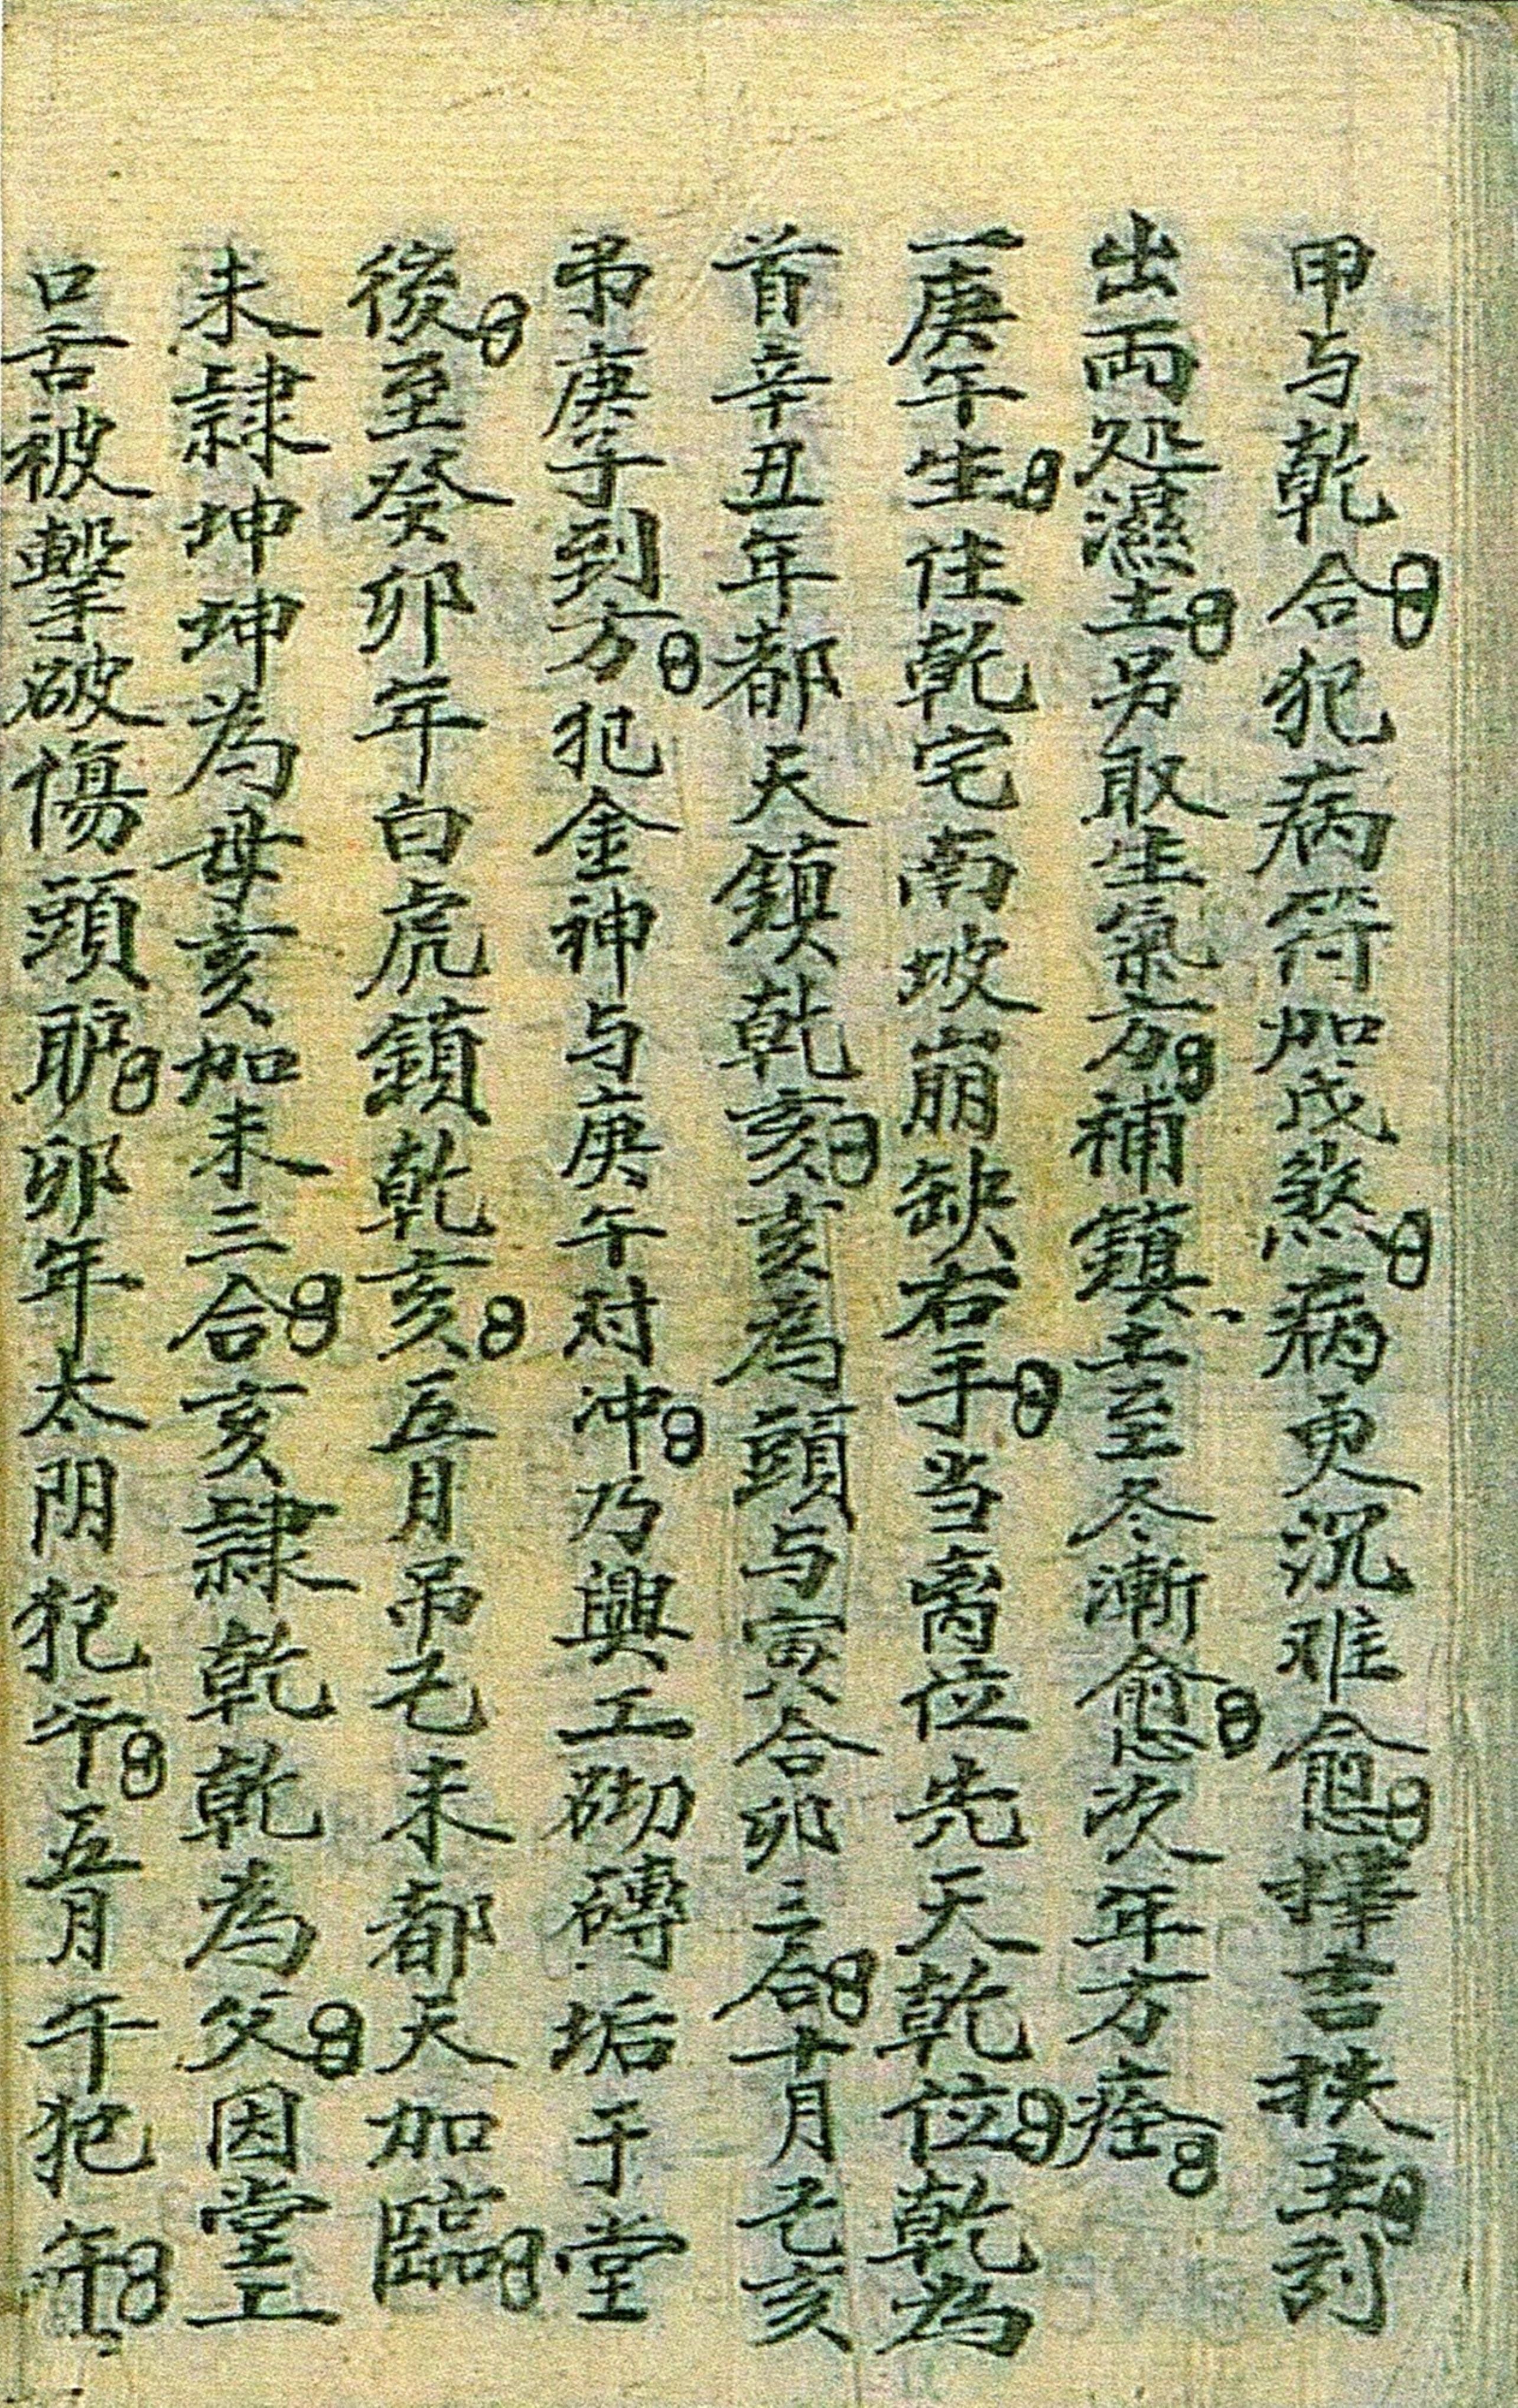 甲与乾合犯病符加民煞病更沉难愈擇吉扶圭刮
出両処濕土另取生氣方補鎮土至冬漸愈次年方痊
一庚午生住乾宅南坡崩缺右手当离位先天乾位乾為
首辛丑年都天鎮乾亥亥為頭与寅合卯三合十月乞亥
吊庚子到方犯金神与庚午对冲乃興工砌磚垢于堂
後至癸卯年白虎鎖乾亥五月吊乞未都天加臨
未隸坤坤為母亥加未三合亥隸乾乾為父因堂工
口舌被擊破傷頭胪卯年太阴犯午五月午犯午